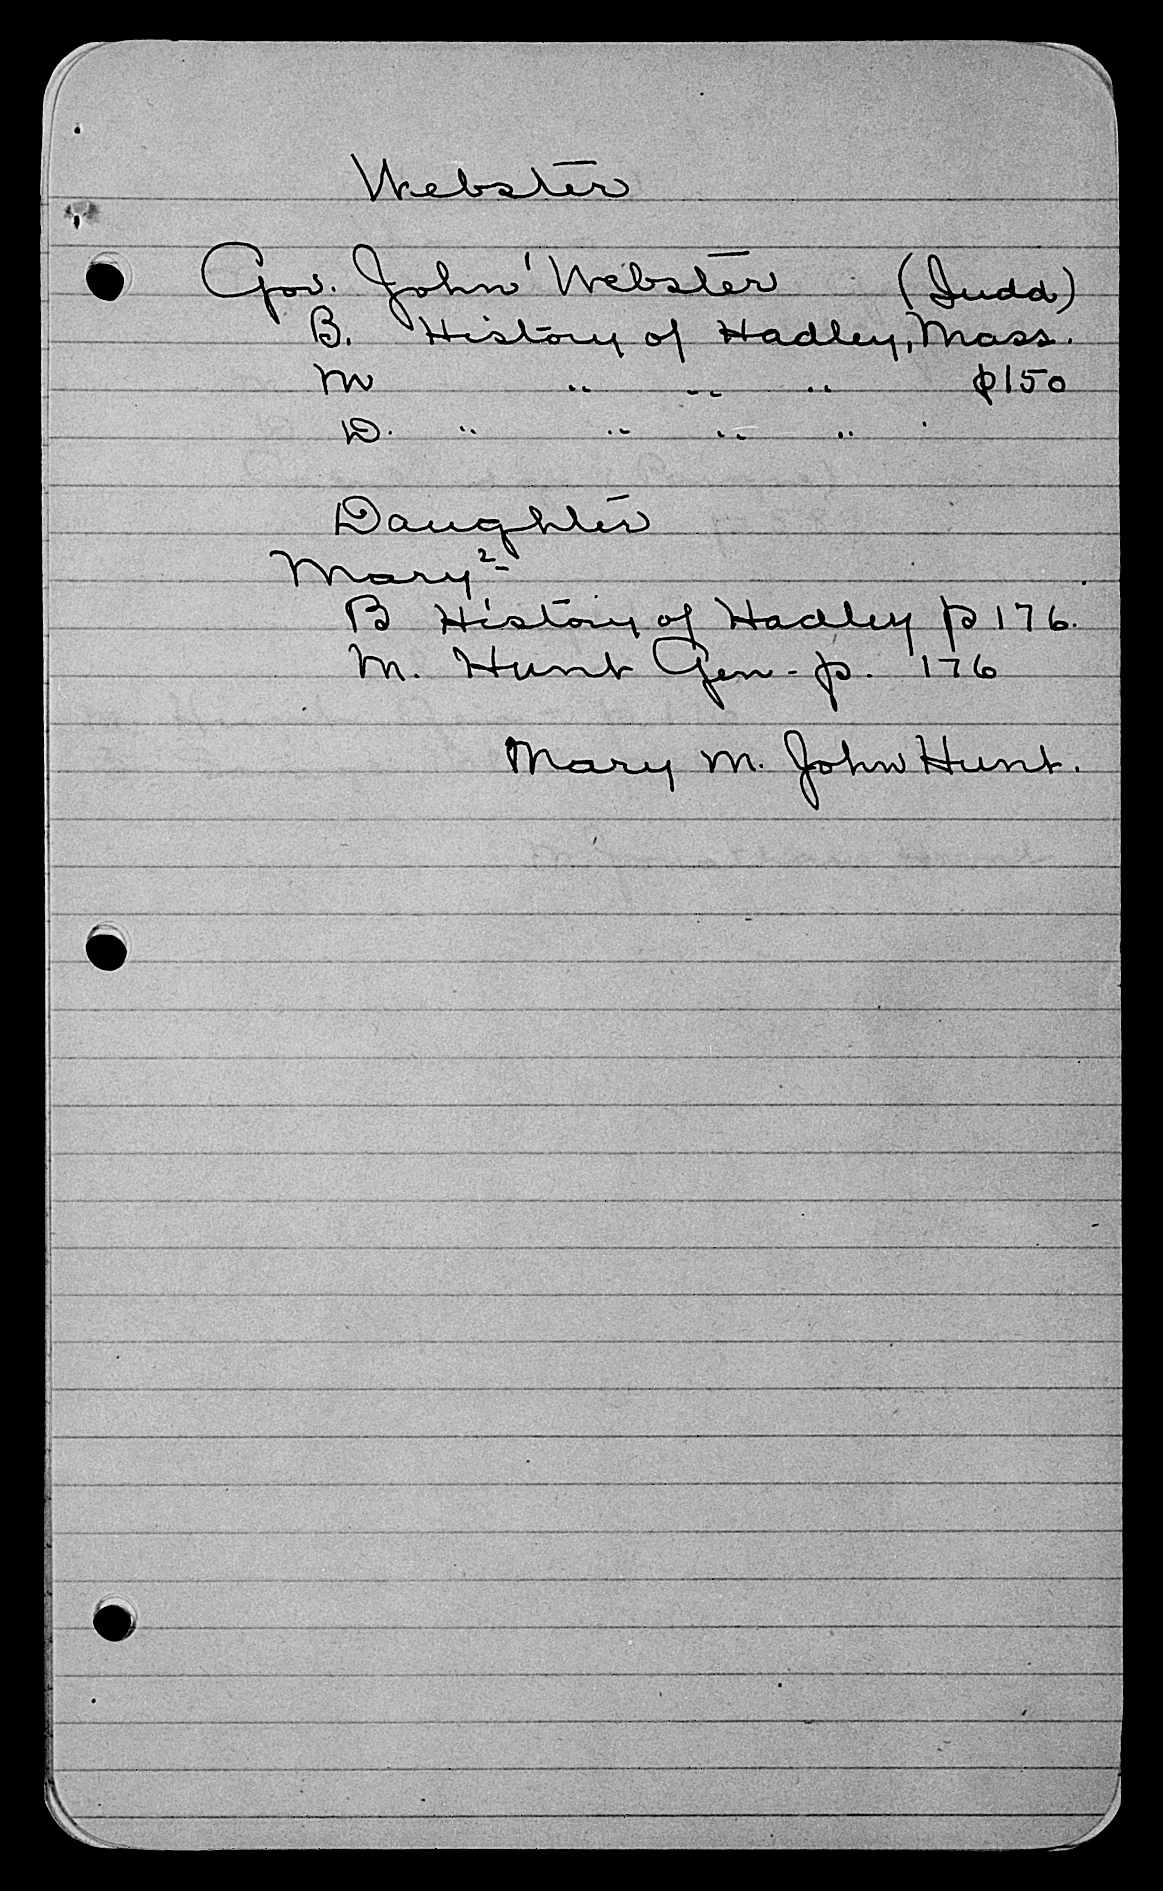 Webster
Gov. John¹ Webster (Judd)
B. History of Hadley, Mass.
M " " " p150
D. " " " "
Daughter
Mary²
B History of Hadley p 176.
M. Hunt Gen - p. 176
Mary M. John Hunt.